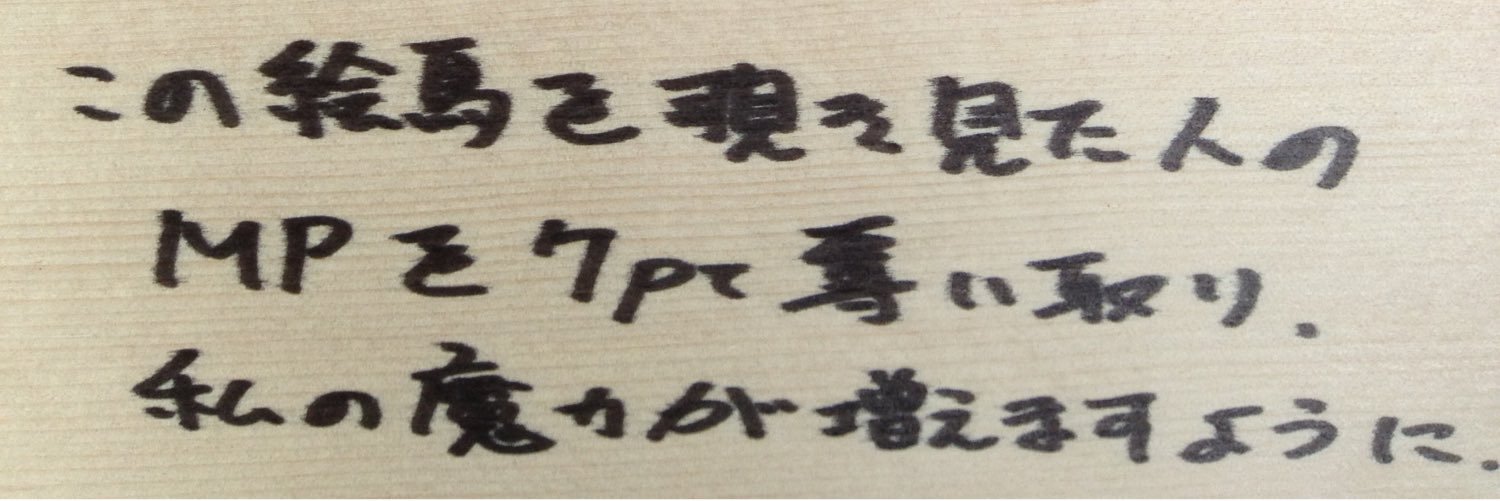 この絵馬を覗き見た人の
MPを7pt奪い取り.
私の魔力が増えますように.